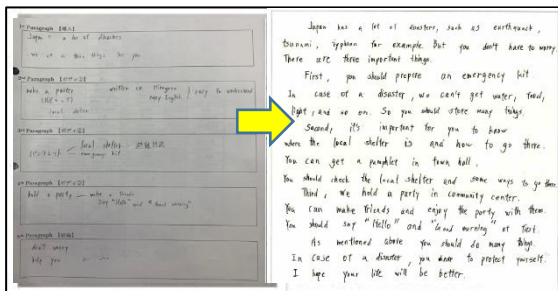 1st Paragraph
Japan = a lot of disasters
2nd Paragraph
make a poster
written in Hiragana
easy English
easy to understand
local shelter
3rd Paragraph
local shelter
emergency kit
Paragraph
hold a party
make a friends
say "Hello" and "Good morning"
Paragraph
don't worry
help you
Japan has a lot of disasters, such as earthquake,
tsunami, typhoon for example. But you don't have to worry.
There are three important things.
First, you should prepare an emergency kit.
In case of a disaster, we can't get water, food,
light, and so on. So you should store many things.
Second, it's important for you to know
where the local shelter is and how to go there.
You can get a pamphlet in town hall.
You should check the local shelter and some ways to go there.
Third, we hold a party in community center.
You can make friends and enjoy the party with them.
You should say "Hello" and "Good morning" at first.
As mentioned above you should do many things.
In case of a disaster, you have to protect yourself.
I hope your life will be better.